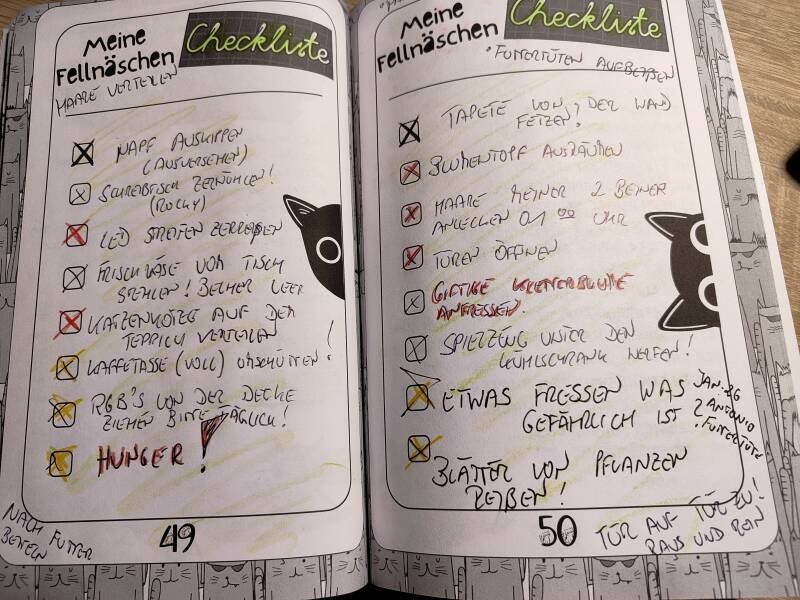 Meine
Fellnäschen
Checkliste
HAARE VERTEILEN
NAPF AUSKIPPEN
(AUSVERSEHEN)
SCHREIBTISCH ZERWÜHLEN!
(ROCKY)
LED STREIFEN ZERREIßEN
FRISCHKÄSE VOM TISCH
STEHLEN! BECHER LEER
KATZENKOTZE AUF DEM
TEPPICH VERTEILEN
KAFFETASSE (VOLL) UMSCHÜTTEN!
RGB'S VON DER DECKE
ZIEHEN BITTE TÄGLICH!
HUNGER!
NACH FUTTER
BETTELN
49
Meine
Fellnäschen
Checkliste
FUTTERTÜTEN AUFBEIßEN
TAPETE VON DER WAND
FETZEN!
BLUMENTOPF AUSRÄUMEN
HAARE MEINER 2 BEINER
ANLECKEN 01 00 UHR
TÜREN ÖFFNEN
GIFTIGE KLETTERBLUME
ANFRESSEN.
SPIELZEUG UNTER DEN
KÜHLSCHRANK WERFEN!
ETWAS FRESSEN WAS
GEFÄHRLICH IST
JAN. 26
ANTONIO
FUTTERTÜTE
BLÄTTER VON PFLANZEN
REIßEN!
50
TÜR AUF TÜR ZU!
RAUS UND REIN